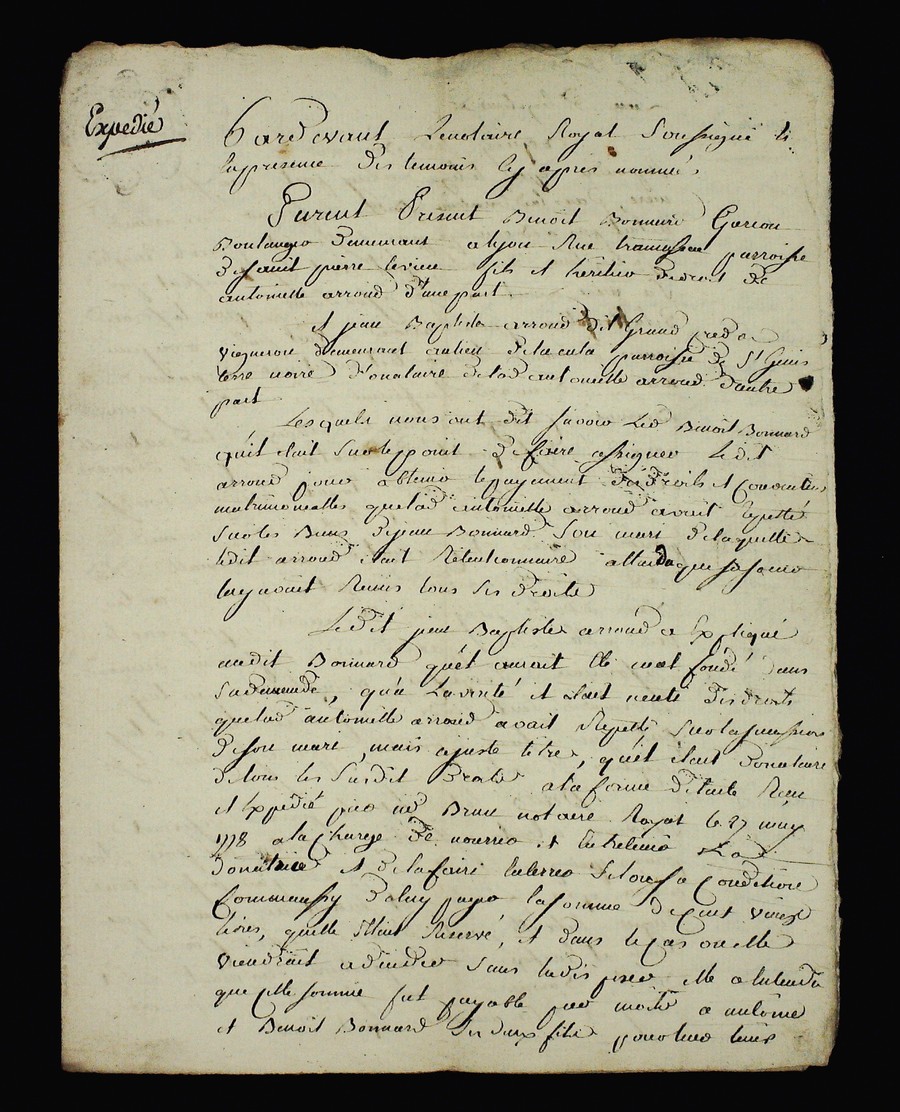 Expedié
Pardevant Le notaire Royal Soussigné &
la presence des temoins cy apres nommés
Furent Present Benoit Bonnard Garcon
Boulanger demeurant a lyon Rue tramassac parroisse
de saint pierre levieu fils et heritier de droit de
antoinette arroud d'une part
et jean Baptiste arroud dit Grand
vigneron demeurant au lieu de la parroisse de St Genis
terre noire donataire de lad antoinette arroud d'autre
part
Lesquels nous ont dit savoir Led Benoit Bonnard
qu'il etait sur le point de faire assigner Ledit
arroud pour obtenir le payement des droits et
matrimonialles que lad antoinette arroud avait repetté
sur les Biens de jean Bonnard son mari de laquelle
ledit arroud etait attendu que sa soeur
luy avait Remis tous ses droits
Ledit jean Baptiste arroud a Expliqué
audit Bonnard qu'il etait fondé dans
sa demande, qu'a la verité il etait des droits
que lad antoinette arroud avait Repetté sur la
de son mari, mais a juste titre, qu'il etait Donataire
de tous les susdit Droits a la forme de l'acte Recu
et Expedié par me Brun notaire Royal le 27 may
1778 a la Charge de nourrir et entretenir Lad
Donatrice et de la faire enterrer selon sa Condition
Comm'aussy de luy payer la somme de Cent vingt
livres, qu'elle s'était Reservé, et dans le Cas ou elle
viendrait a déceder sans en disposer elle a entendu
que cette somme fut payable par moitié a antoine
et Benoit Bonnard ses deux fils pour tous leurs